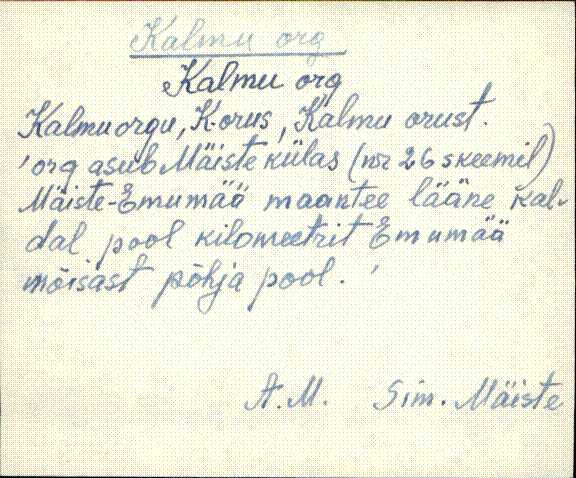 Kalmu org
Kalmu org
Kalmuorgu, K-orus, Kalmu orust.
'org asub Mäiste külas (nr 26 skeemil)
Mäiste-Emumää maantee lääne kal-
dal pool kilomeetrit Emumää
mõisast põhja pool.'
A.M. Sim. Mäiste